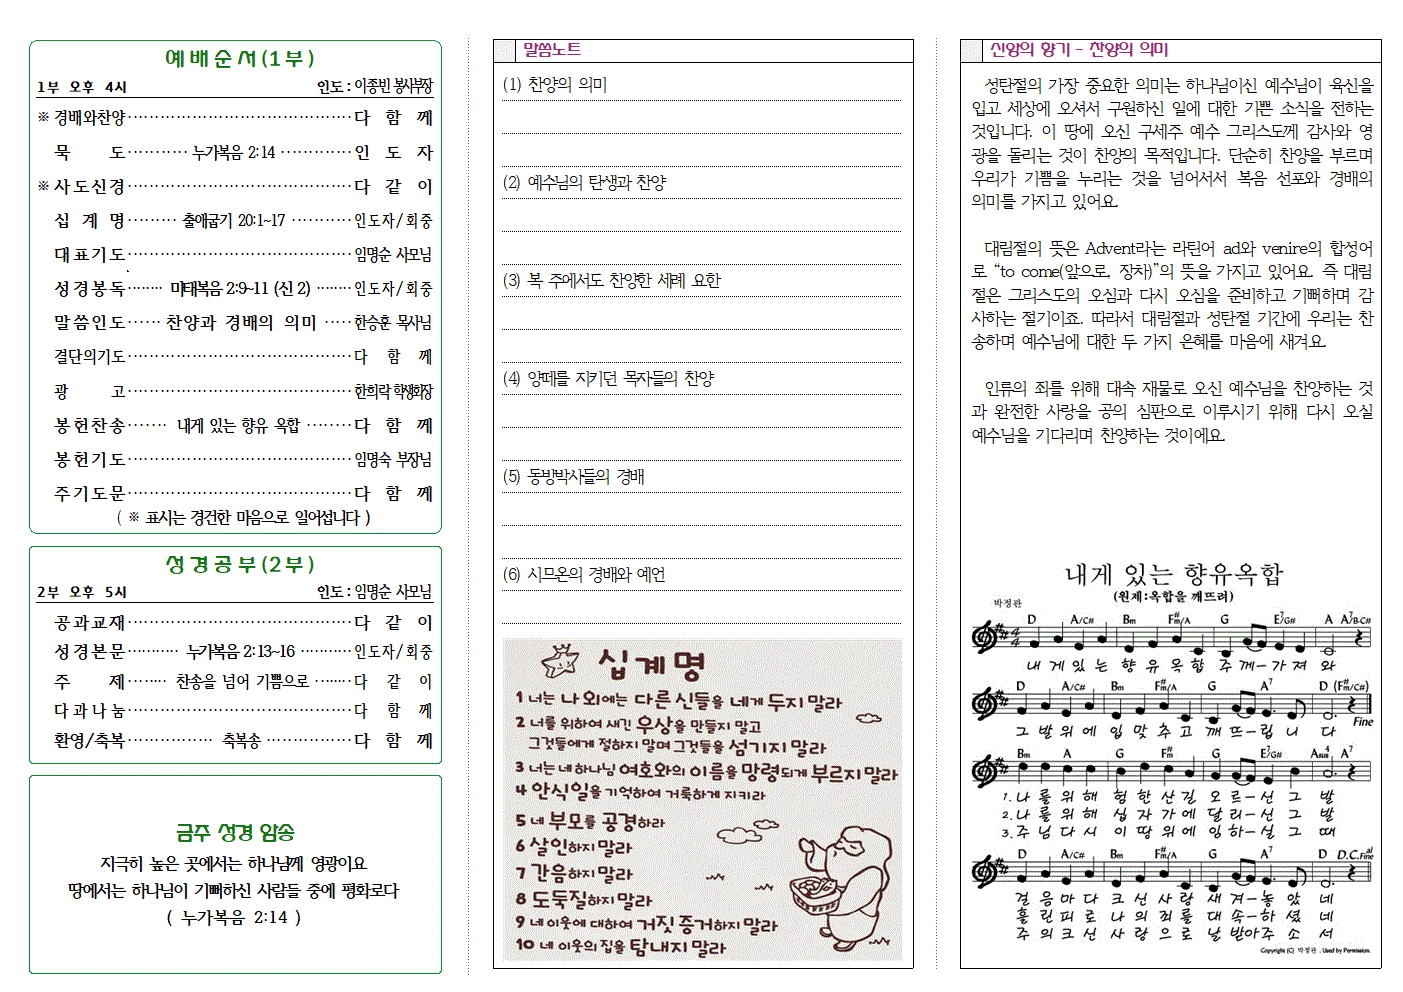 예 배 순 서 ( 1 부 )
1부 오후 4시 인도 : 이종빈 봉사부장
※ 경배와찬양 다 함 께
묵 도 누가복음 2:14 인 도 자
※ 사도신경 다 같 이
십 계 명 출애굽기 20:1~17 인도자/회중
대표기도 임명순 사모님
성경봉독 마태복음 2:9~11 (신 2) 인도자/회중
말씀인도 찬양과 경배의 의미 한승훈 목사님
결단의기도 다 함 께
광 고 한희락 학생회장
봉헌찬송 내게 있는 향유 옥합 다 함 께
봉헌기도 임명숙 부장님
주기도문 다 함 께
( ※ 표시는 경건한 마음으로 일어섭니다 )
성 경 공 부 ( 2 부 )
2부 오후 5시 인도 : 임명순 사모님
공과교재 다 같 이
성경본문 누가복음 2:13~16 인도자/회중
주 제 찬송을 넘어 기쁨으로 다 같 이
다과나눔 다 함 께
환영/축복 축복송 다 함 께
금주 성경 암송
지극히 높은 곳에서는 하나님께 영광이요
땅에서는 하나님이 기뻐하신 사람들 중에 평화로다
( 누가복음 2:14 )
말씀노트
(1) 찬양의 의미
(2) 예수님의 탄생과 찬양
(3) 복 주에서도 찬양한 세례 요한
(4) 양떼를 지키던 목자들의 찬양
(5) 동방박사들의 경배
(6) 시므온의 경배와 예언
십계명
1 너는 나 외에는 다른 신들을 네게 두지 말라
2 너를 위하여 새긴 우상을 만들지 말고
그것들에게 절하지 말며 그것들을 섬기지 말라
3 너는 네 하나님 여호와의 이름을 망령되게 부르지 말라
4 안식일을 기억하여 거룩하게 지키라
5 네 부모를 공경하라
6 살인하지 말라
7 간음하지 말라
8 도둑질하지 말라
9 네 이웃에 대하여 거짓 증거하지 말라
10 네 이웃의 집을 탐내지 말라
신앙의 향기 - 찬양의 의미
성탄절의 가장 중요한 의미는 하나님이신 예수님이 육신을
입고 세상에 오셔서 구원하신 일에 대한 기쁜 소식을 전하는
것입니다. 이 땅에 오신 구세주 예수 그리스도께 감사와 영
광을 돌리는 것이 찬양의 목적입니다. 단순히 찬양을 부르며
우리가 기쁨을 누리는 것을 넘어서서 복음 선포와 경배의
의미를 가지고 있어요.
대림절의 뜻은 Advent라는 라틴어 ad와 venire의 합성어
로 “to come(앞으로, 장차)”의 뜻을 가지고 있어요. 즉 대림
절은 그리스도의 오심과 다시 오심을 준비하고 기뻐하며 감
사하는 절기이죠. 따라서 대림절과 성탄절 기간에 우리는 찬
송하며 예수님에 대한 두 가지 은혜를 마음에 새겨요.
인류의 죄를 위해 대속 재물로 오신 예수님을 찬양하는 것
과 완전한 사랑을 공의 심판으로 이루시기 위해 다시 오실
예수님을 기다리며 찬양하는 것이에요.
내게 있는 향유옥합
(원제:옥합을 깨뜨려)
박정관
D A/C# Bm F#m/A G E7/G# A A7/B-C#
내 게 있 는 향 유 옥 합 주 께 - 가 져 와
D A/C# Bm F#m/A G A7 D (F#m/C#)
Fine
그 발 위 에 입 맞 추 고 깨 뜨 - 립 니 다
Bm A G F#m G E7/G# Asus4 A7
1. 나 를 위 해 험 한 산 길 오 르 - 신 그 발
2. 나 를 위 해 십 자 가 에 달 리 - 신 그 발
3. 주 님 다 시 이 땅 위 에 임 하 - 실 그 때
D A/C# Bm F#m/A G A7 D D.C. al Fine
걸 음 마 다 크 신 사 랑 새 겨 - 놓 았 네
흘 린 피 로 나 의 죄 를 대 속 - 하 셨 네
주 의 크 신 사 랑 으 로 날 받아 주 소 서
Copyright (C) 박정관 . Used by Permission.